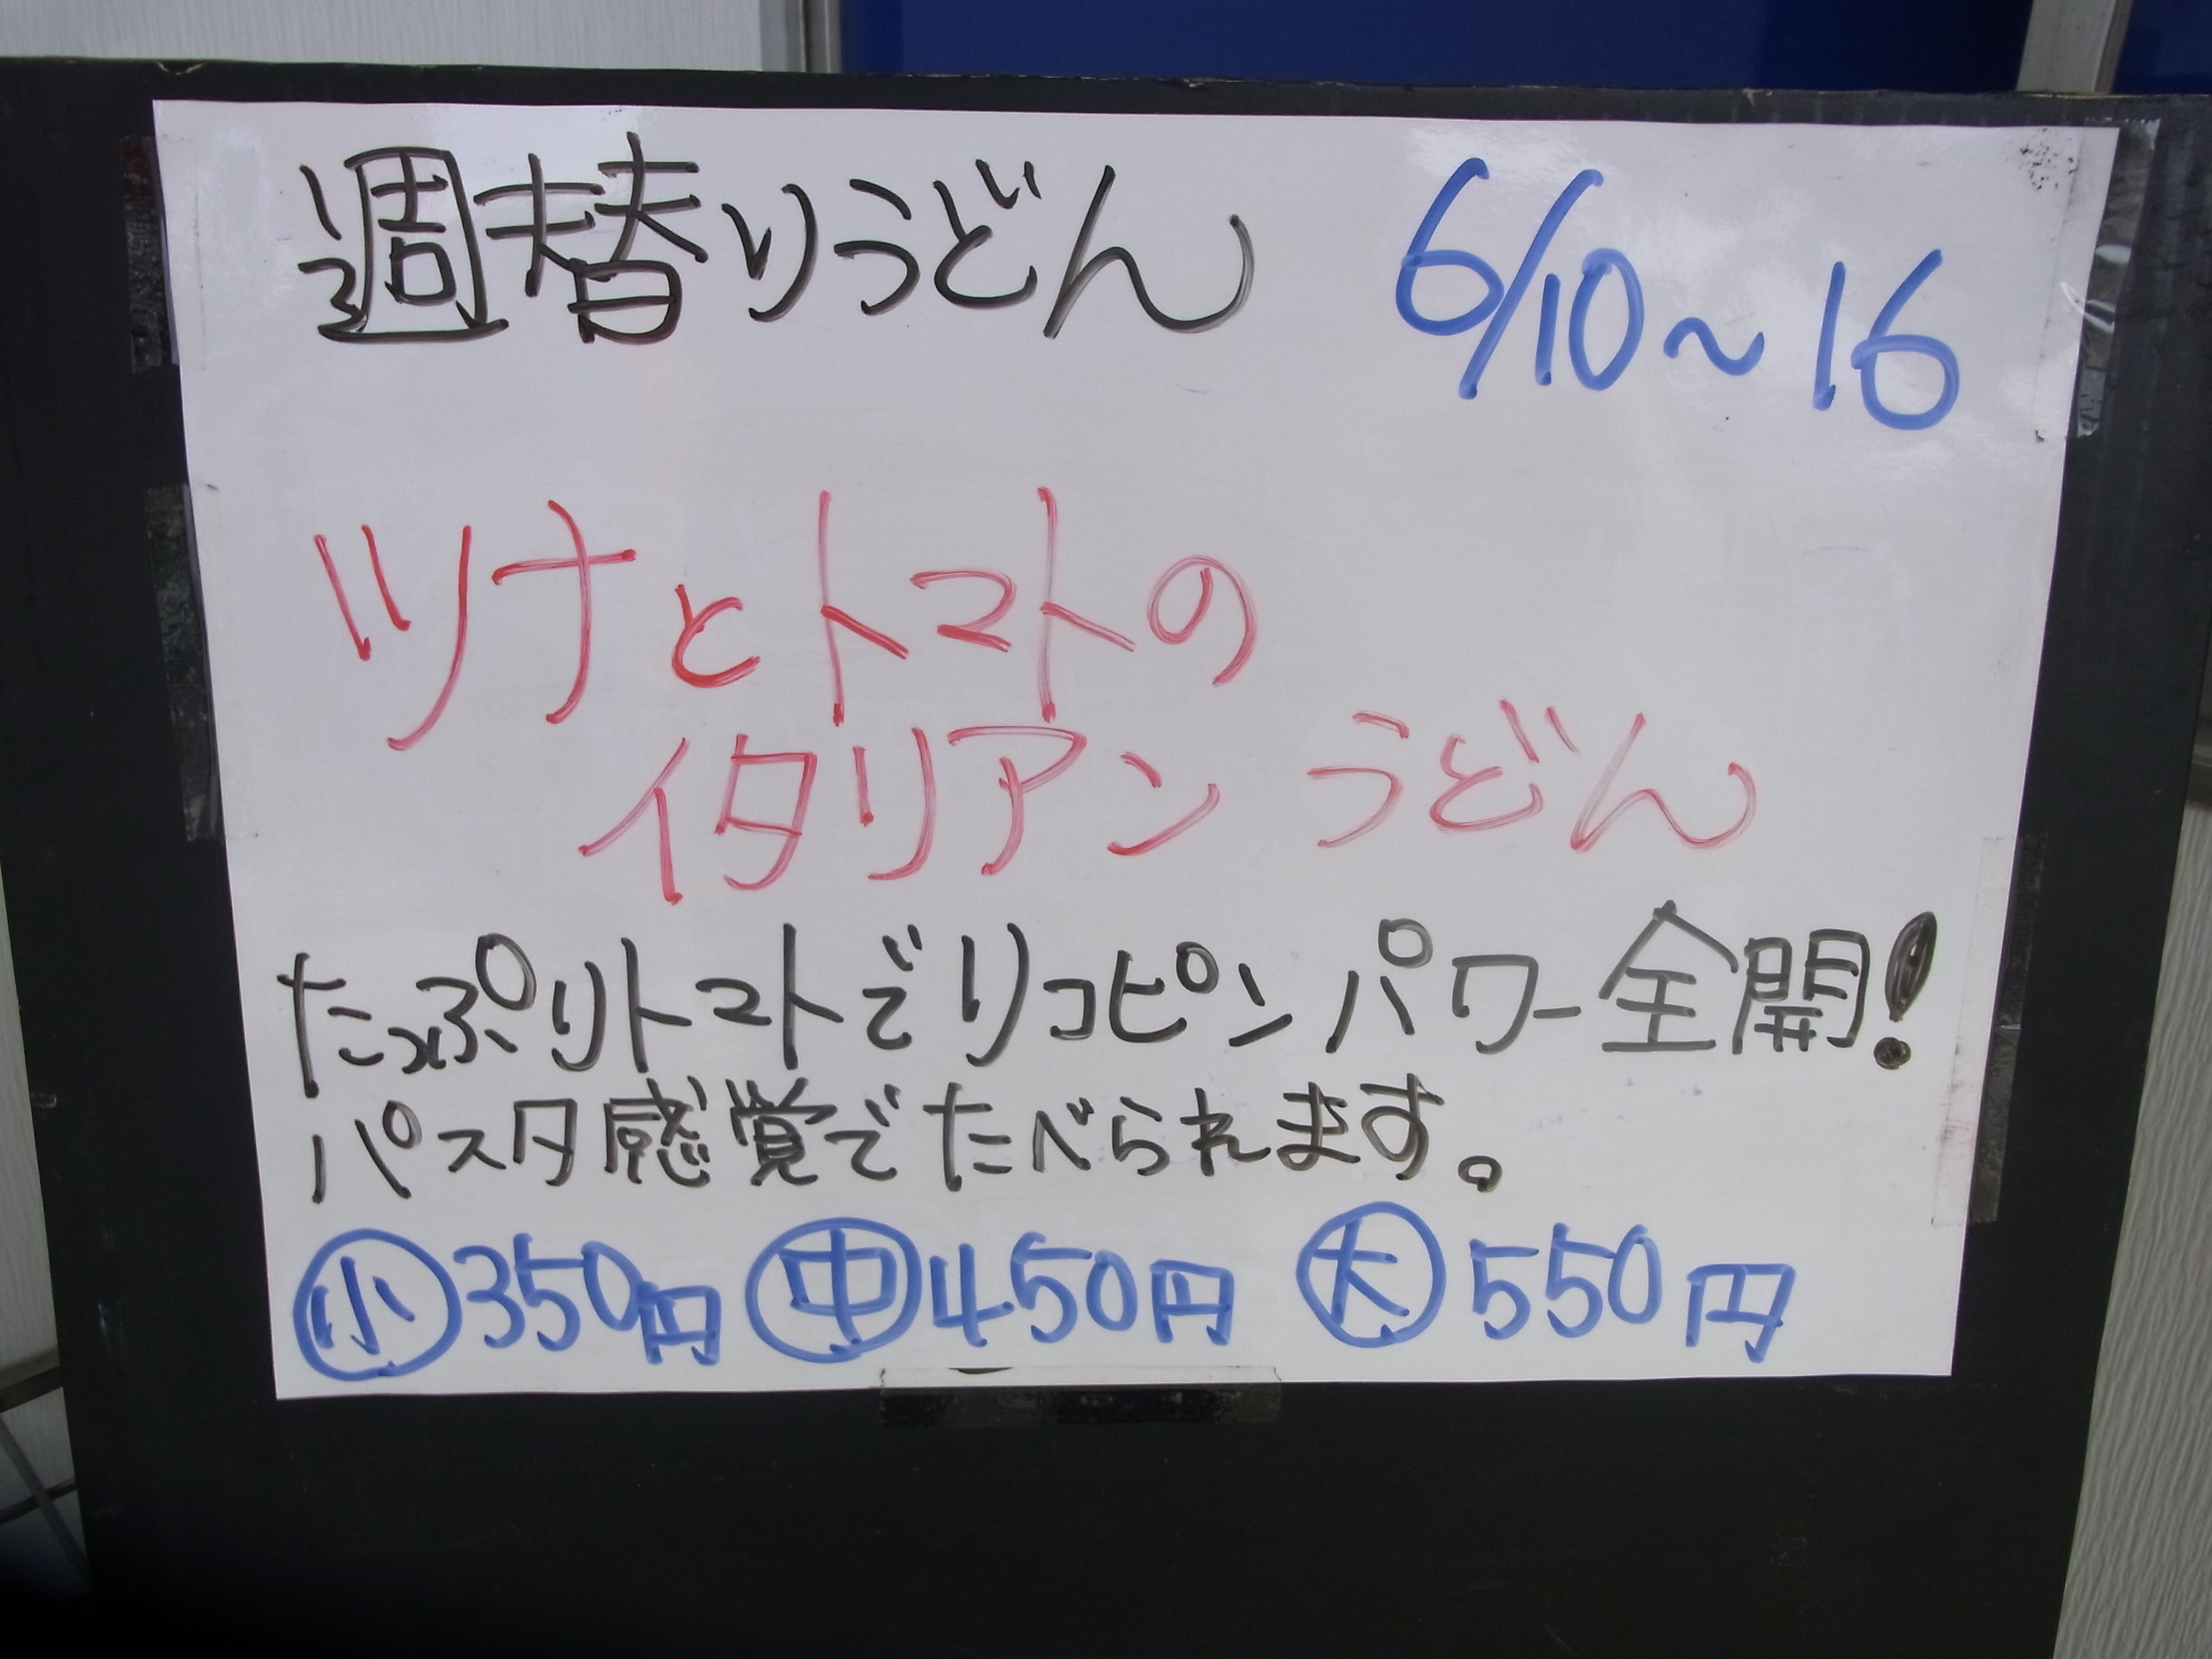 週替りうどん 6/10～16
ツナとトマトの
イタリアン うどん
たっぷりトマトでリコピンパワー全開!
パスタ感覚でたべられます。
㊛小 350円 ㊥ 450円 大 550円